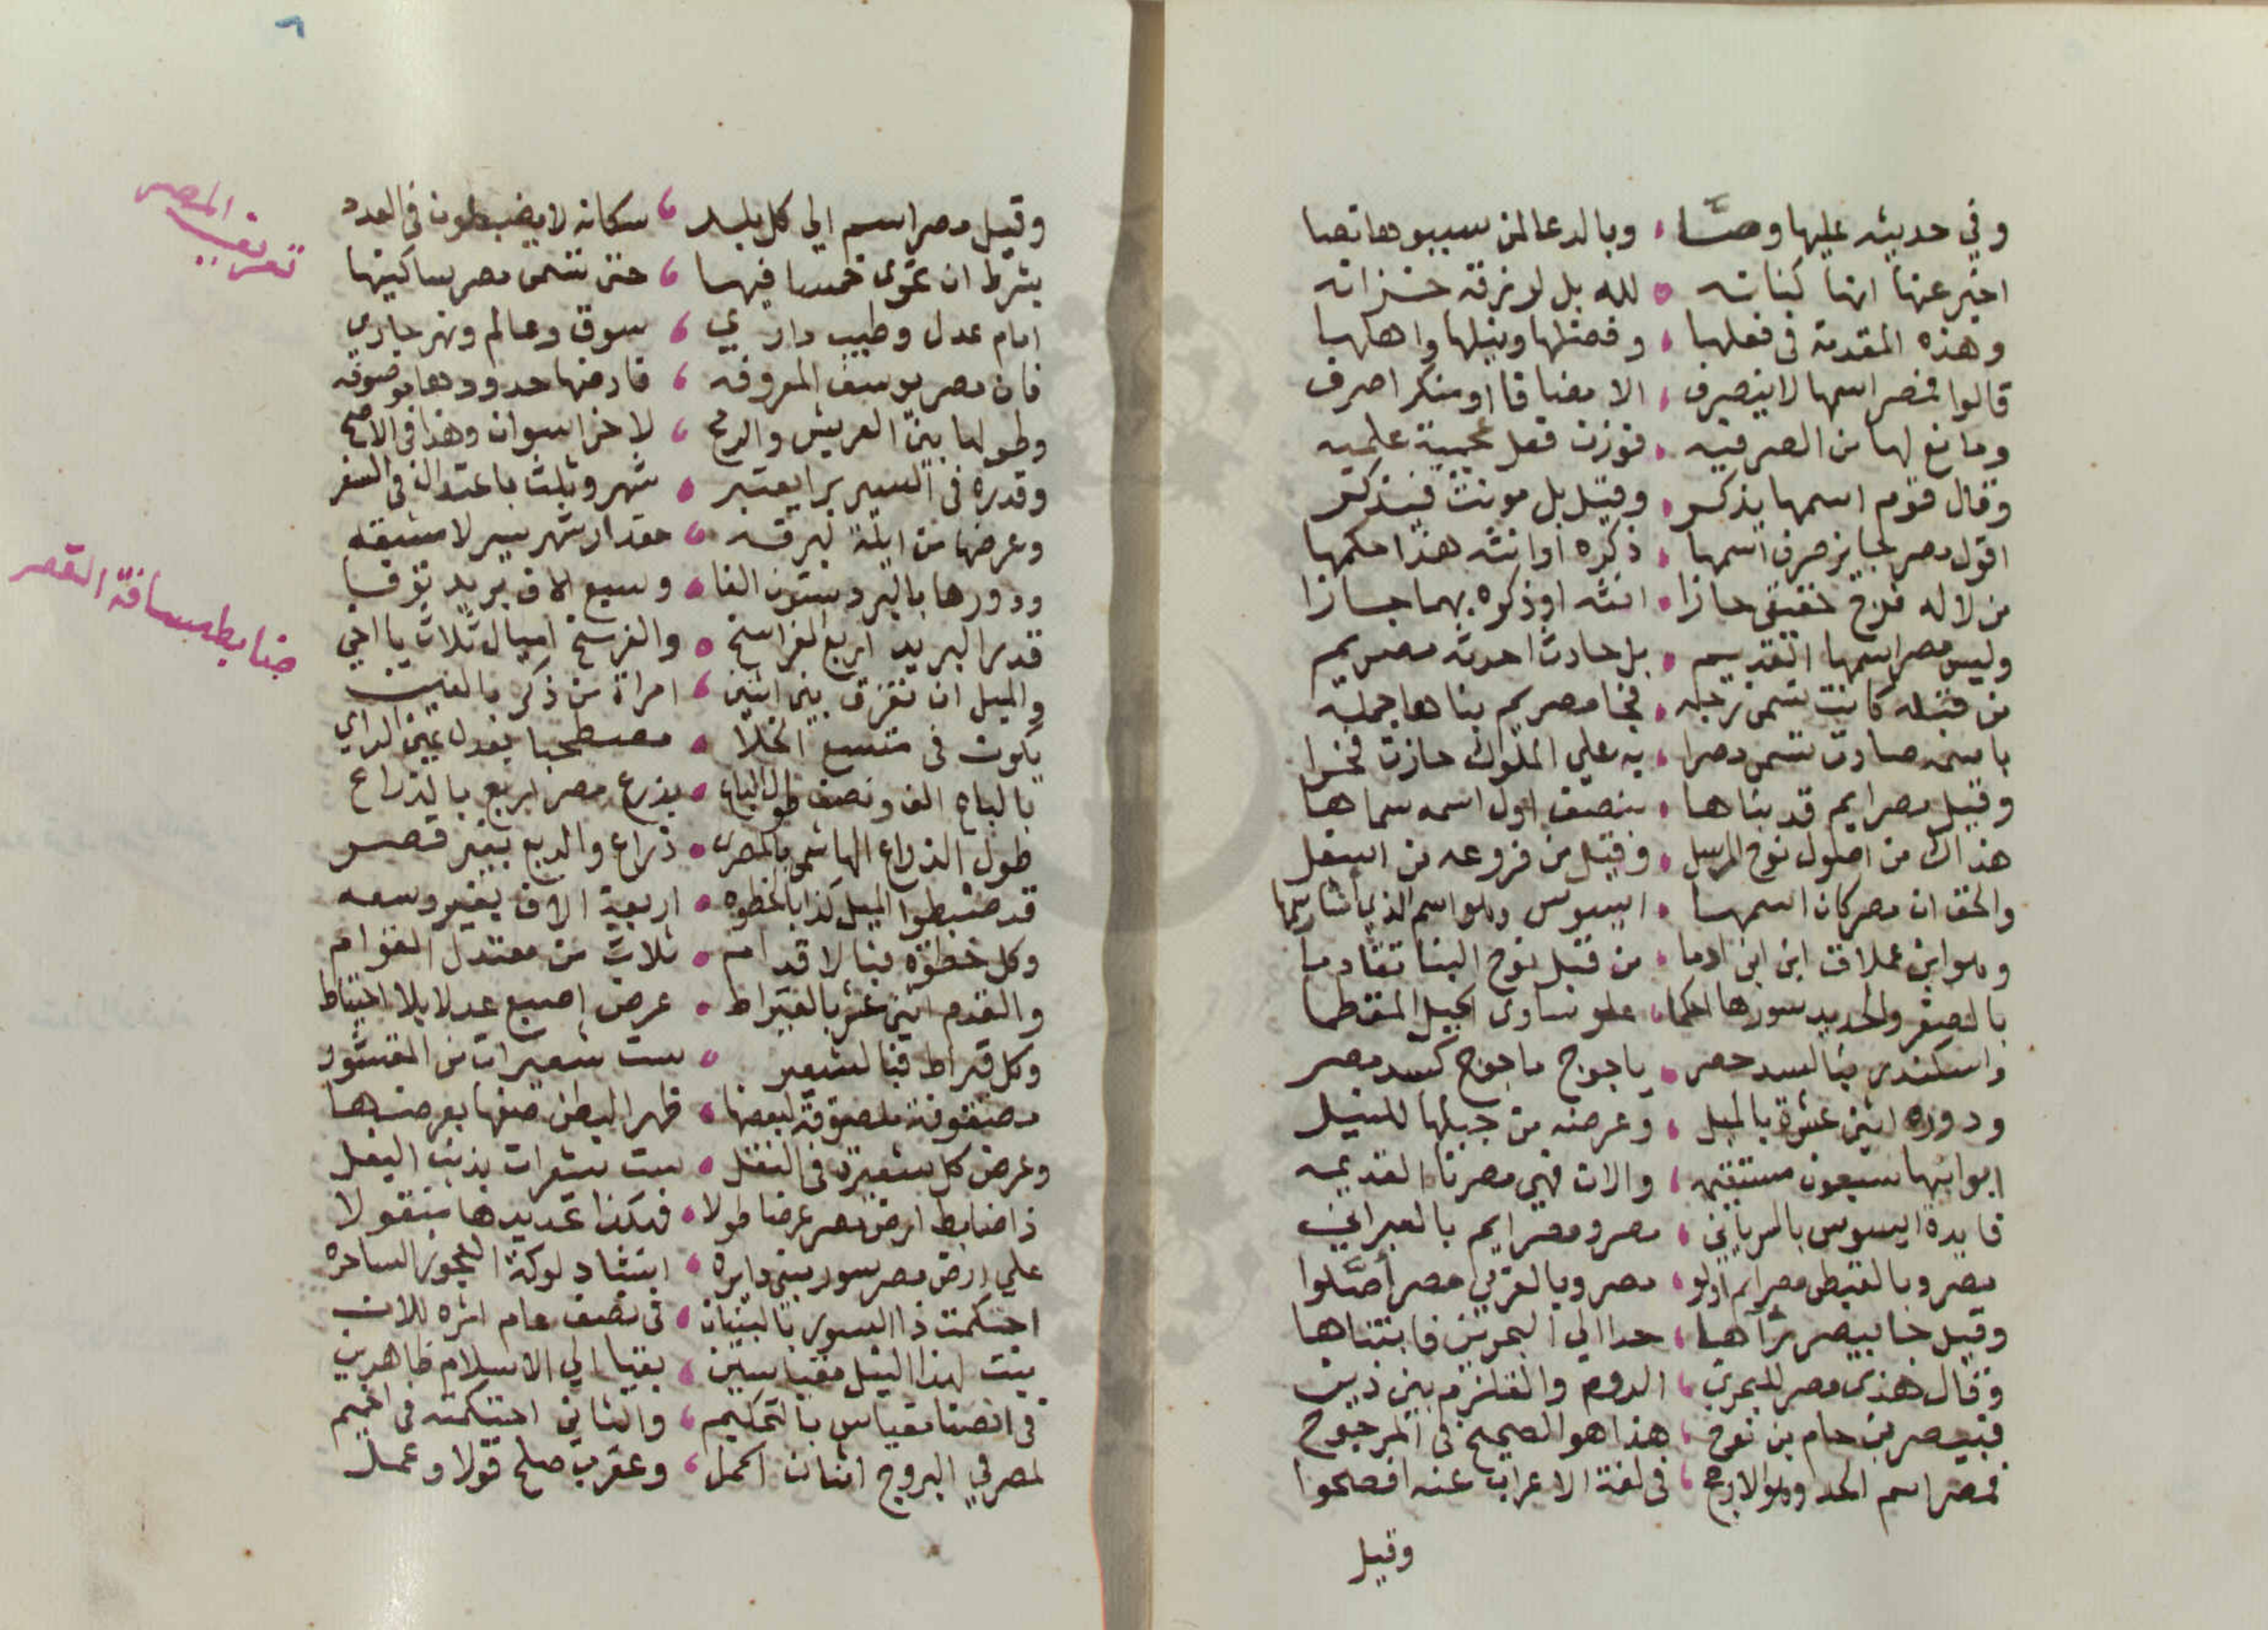 وفي حديثه عليها وصّا ، وبالدعا لمن سببوها تصا
اخبر عنها انها كنانه ٥ لله بل لرزقه خزانه
وهذه المقدمة في فعلها ، وفضلها ونيلها واهلها
قالوا فمصر اسمها لا ينصرف ، الا مضافا او منكرا صرف
ومانع لها من الصرفيه ، فوزن فعل عجمية علميه
وقال قوم اسمها يذكر ، وقيل بل مونث فيذكر
اقول مصر جايز صرف اسمها ، ذكره او انثه هذا حكمها
من لا له فرج حقيقي حازا ، انثه او ذكره بهما جازا
وليس مصر اسمها القديم ، بل حادث احدثه مصريم
من قبله كانت تسمى زجله ، فجا مصريم بناها جمله
باسمه صارت تسمى مصرا ، به على الملوك حازت فخرا
وقيل مصرايم قد بناها ، بنصف اول اسمه سماها
هذاك من اصول نوح المرسل ، وقيل من فروعه من اسفل
والحق ان مصر كان اسمها ، ايسوس وهو اسم الذي انشا رسمها
وهو ابن عملاق ابن ابن ادما ، من قبل نوح البنا تقادما
بالصفر والحديد سورها احكما ، علو تساوى الجبل المقطما
واسكندر بنا لسد حصر ، ياجوج ماجوج كسد مصر
ودوره اثنى عشرة بالميل ، وعرضه من جبلها للنيل
ابوابها سبعون مستقيمه ، والان فهي مصرنا القديمه
فايدة ايسوس بالسرياني ، مصر ومصرايم بالعبراني
مصر وبالقبطي مصرايم اولو ، مصر وبالعربي مصر أصّلوا
وقيل جا بيصر ترآها ، حدا الى البحرين فابتناها
وقال هذى مصر للبحرين ، الروم والقلزم بين ذين
فبيصر بن حام بن نوح ، هذا هو الصحيح في المرجوح
فمصر اسم الحد وهو الارجح ، في لغة الاعراب عنه افصحوا
وقيل
تعريف المصر
وقيل مصر اسم الى كل بلد ، سكانه لا يضبطون في العدد
بشرط ان تحوى خمسا فيها ، حتى تسمى مصر ساكنيها
امام عدل وطبيب داري ، سوق وعالم ونهر جاري
فان مصر يوسف المعروفه ، فارضها حدودها موصوفه
وطولها بين العريش والرمح ، لاخر اسوان وهذا في الاصح
وقدره في السير برا يعتبر ، شهر وثلث باعتدال في السفر
وعرضها من ايلة لبرقه ، مقدار شهر سير لا مشقه
ودورها بالبرد ستون الفا ، وسبع الاف بريد توفا
ضابط مسافة القصر
قدر البريد اربع الفراسخ ٥ والفرسخ اميال ثلاث يا اخي
والميل ان تفرق بين اثنين ، امراة من ذكر بالعين
يكون في متسع الخلا ، مصطحبا بعدل عين الراي
بالباع الف ونصف طول الباع ، بذرع مصر اربع بالذراع
طول الذراع الهاشمي بالمصري ، ذراع والربع بغير قصر
قد ضبطوا الميل كذا بالخطوه ، اربعة الاف بغير وسعه
وكل خطوة فبالاقدام ، ثلاث من معتدل القوام
والقدم اثنى عشر بالقيراط ، عرض إصبع عدلا بلا احتياط
وكل قيراط فبالشعير ٥ ست شعيرات من المقشور
مصفوفة ملصوقة لبعضها ، ظهرا لبطن صفها بعرضها
وعرض كل شعيرة في النقل ، ست شعرات بذنب البغل
ذا ضابط ارض مصر عرضا طولا ، فهكذا تحديدها منقولا
على ارض مصر سور بنى دايره ، انشاد لوكة العجوز الساحره
احكمت ذا السور بالبنيان ، في نصف عام اثره للان
بنت لهذا النيل مقياسين ، بقيا الى الاسلام ظاهرين
في انصنا مقياس بالتحكيم ، والثاني احتكمته في اخميم
لمصر في البروج اثنان احمل ، وعقرب صلح قولا وعمل